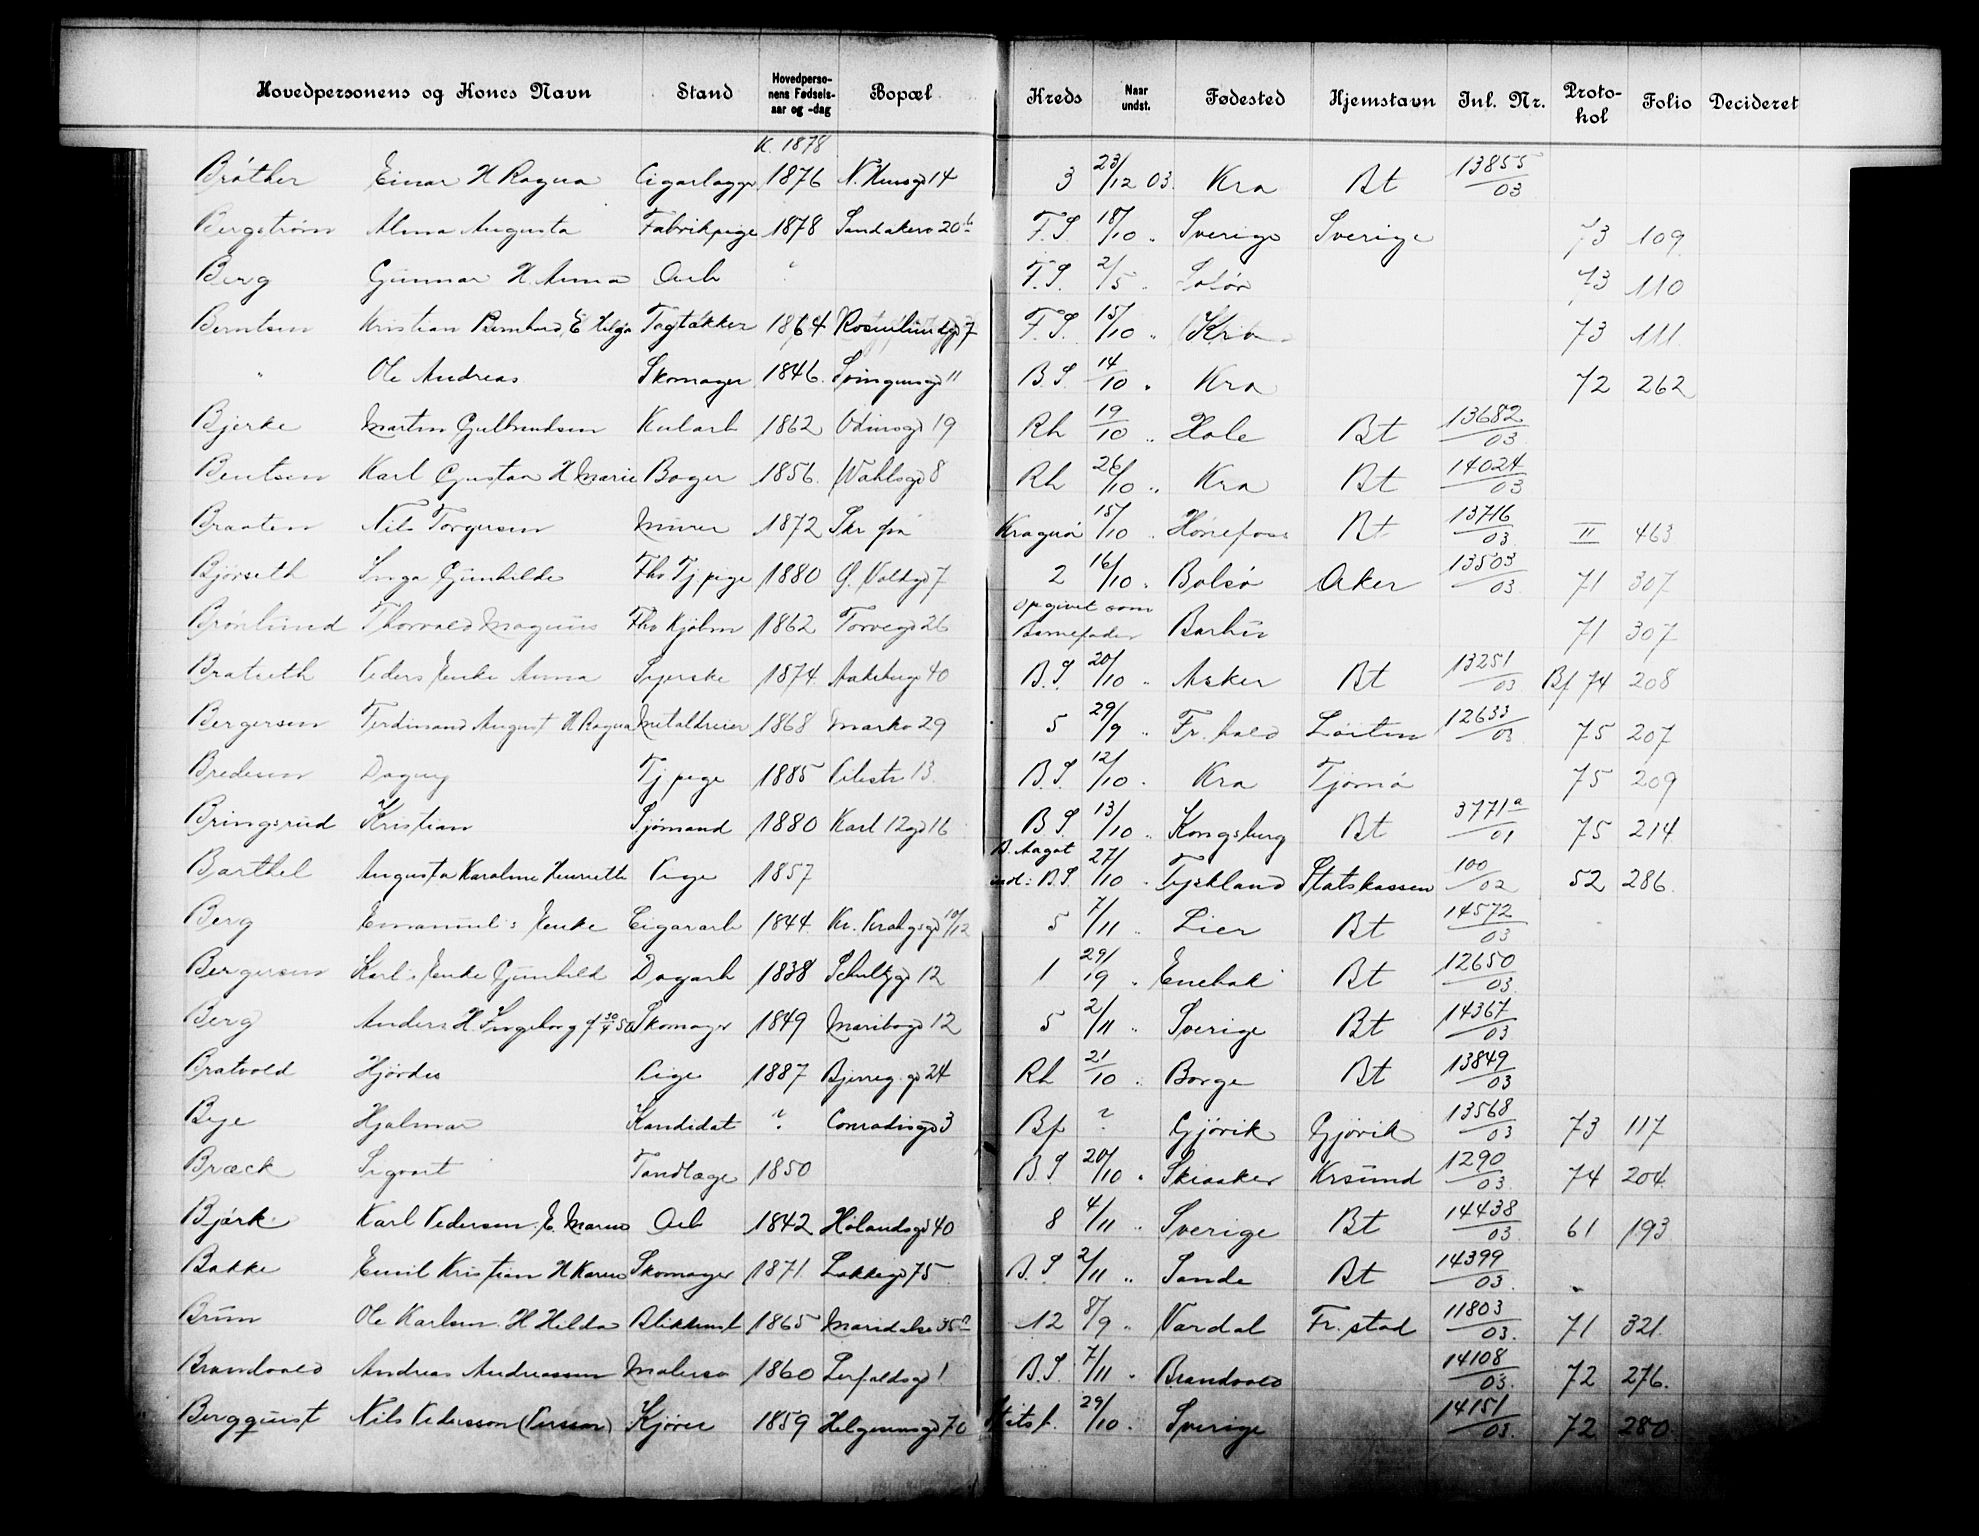 Hovedpersonens og Kones Navn Stand Hovedpersonens Fødselsaar og -dag Bopæl Kreds Naar undst. Fødested Hjemstavn Inl. Nr. Protokol Folio Decideret
K. 1878
Bråther Einar H Ragna 1876 14 3 23/12 03. Kra Bt 13855/03
Bergstrøm Alma Augusta Fabrikpige 1878 Sandakerv 20 F. S. 18/10 " Sverige Sverige 73 109
Berg Gunnar H. Anna Arb ? F. S. 2/5 " Solør 73 110
Berntsen Kristian Bernhard E. Helga Tagtækker 1864 Rosenlundgd 7 F. S. 15/10 " Kra 73 111
" Ole Andreas Skomager 1846. 11 B. S. 14/10 " Kra 72 262
Bjerke Martin Gulbrandsen Kularb 1862 Odinsgd 19 Rh 19/10 " Hole Bt 13682/03
Bentsen Karl Gustav H Marie Bager 1856. Wahlsgd 8 Rh 26/10 " Kra Bt 14024/03
Braaten Nils Torgersen Murer 1872 Kragerø 15/10 " Hønefoss Bt 13716/03 II 463
Bjørseth Inga Gunhilde Fhv Tj. pige 1880 Ø. Voldgd 7 2 16/10 " Bolsø Aker 13503/03 71 307
Brønlund Thorvald Magnus 1862 Torvegd 26 opgivet som Barnefader 71 307
Bratseth Peders Enke Anna Syerske 1874. Aakebergv 40 B. S. 20/10 " Asker Bt 13251/03 Bf 74 208
Bergersen Ferdinand August H Ragna Metaldreier 1868 Markv 29 5 29/9 " Fr. hald Løiten 12633/03 75 207
Bredesen Dagny Tj pige 1885 Pilestr 13. B. S. 12/10 " Kra Tjømø 75 209
Bringsrud Kristian Sjømand 1880 Karl 12gd 16 B S. 13/10 " Kongsberg Bt 3771a/01 75 214.
Barthel Augusta Karoline Henriette Pige 1857 B. Aagot ind: B. S. 27/10 " Tyskland Statskassen 100/02 52 286.
Berg Emanuel's Enke Cigararb 1844. Kr. Kroghsgd 10/12 5 7/11 " Lier Bt 14572/03
Bergersen Karl's Enke Gunhild Dagarb 1838 Schultzgd 12 1 29/9 " Enebak Bt 12650/03
Berg Anders H. Ingeborg f 30/4 50 Skomager 1849 Maribogd 12 5 2/11 " Sverige Bt 14367/03
Bratvold Hjørdis Pige 1887 Bjerreg. gd 24 Rh 21/10 " Borge Bt 13849/03
Bye Hjalmar Kandidat ? Conradisgd 3 Bf ? Gjøvik Gjøvik 13568/03 73 117
Bræck Sigvart Tandlæge 1850 B. S 20/10 " Skiaaker Krsund 1290/03. 74 204.
Bjørk Karl Pedersen. E. Maren Arb 1842 Hølandsgd 40 8 4/11 " Sverige Bt 14438/03. 61 193
Bakke Emil Kristian H Karen Skomager 1871. Lakkegd 75 B. S 2/11 " Sande Bt 14399/03.
Brun Ole Karlsen. H Hilda 1865 Maridalsv 35 12 8/9 " Vardal Fr. stad 11803/03. 71 321.
Brandvold Andreas Andreassen Malersv 1860 Lerfaldsgd 1 B. S. 7/11 " Brandvold 14108/03. 72 276.
Bergquist Nils Pedersson (Persson) Kjører 1859 Helgesensgd 70 Statsk. 29/10 " Sverige 14151/03. 72 280